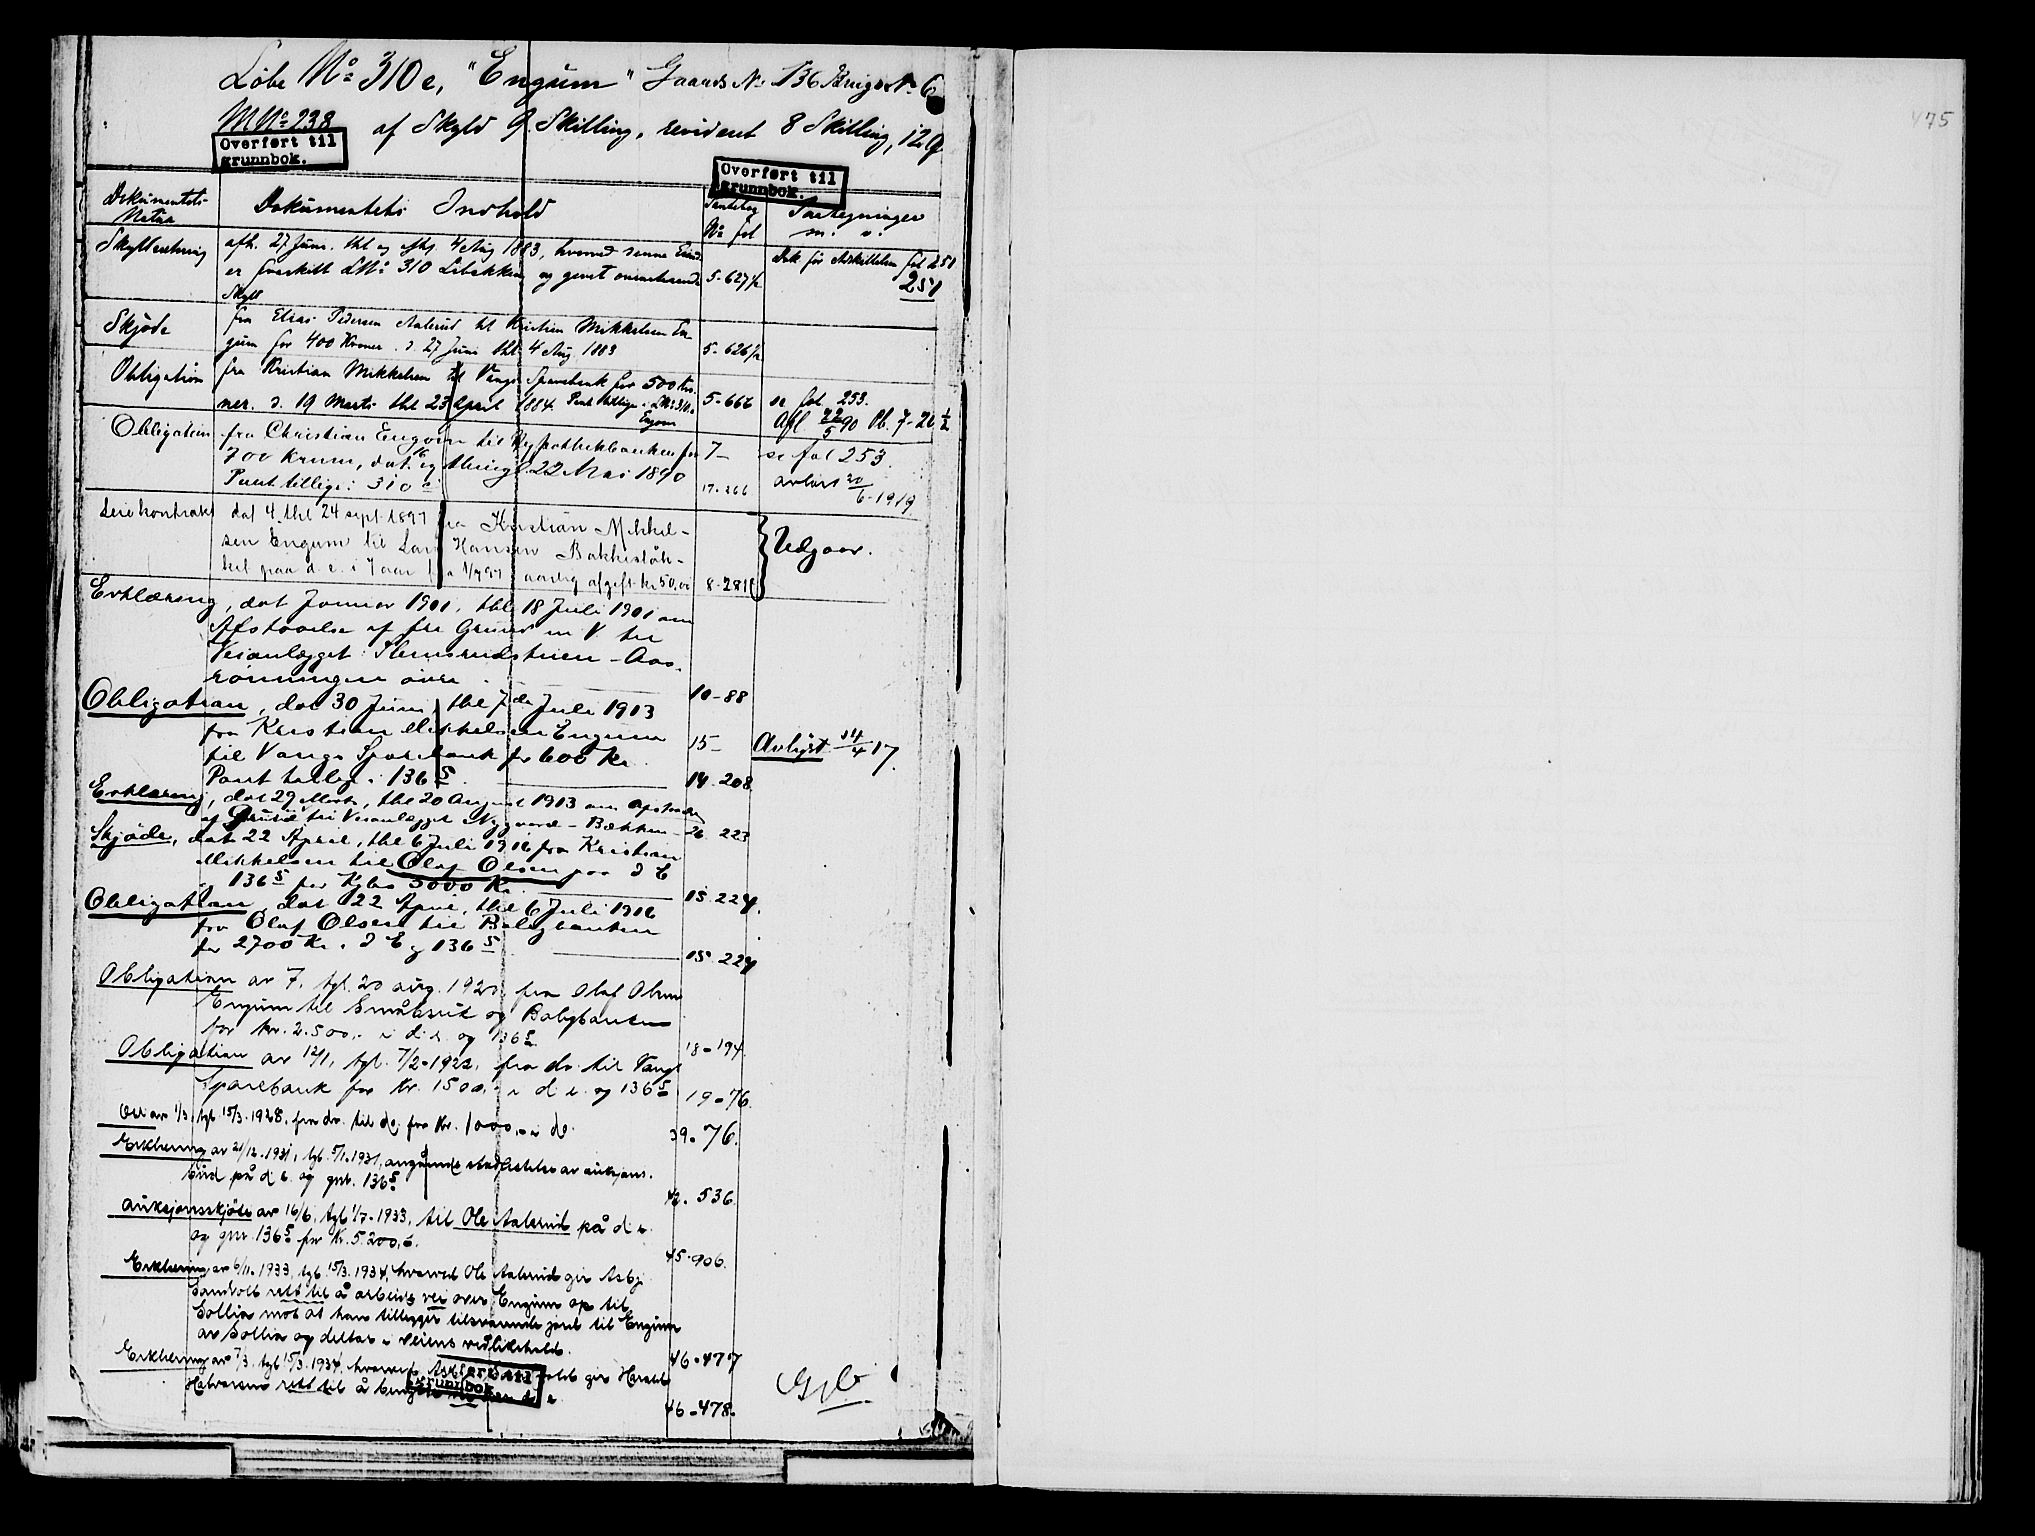 Løbe No 310e, "Engum" Gaards No 136 Brugs No 6
M No 238 af Skyld 9 Skilling, revideret 8 Skilling, 12
Overført til
grunnbok.
Overført til
grunnbok.
Dokumentets Natur
Dokumentets Indhold
Pantebog No fol
Antegninger m. v.
Skyldsætning afh. 27 Juni, thl og afhj. 4 Aug 1883, hvorved denne Eiend.
er fraskilt LNo 310 og givet ovenstaaende 5-627
Skyld
Dok før Adskillelsen fol 251
251
Skjøde fra Elias Pedersen Aalerud til Kristian Mikkelsen En-
gum for 400 Kroner. d. 27 Juni thl. 4 Aug 1883 5-626
Obligation fra Kristian Mikkelsen til Vangs Sparebank for 500 Kro-
ner. d. 19 Marts thl 23 April 1884. Pant tillige i LNo 310 5-666 se fol. 253.
Engum
Afl. 22/5 90 Pb. 7-26 1/2
Obligation fra Christian Engum til Hypothekbanken for 7- se fol 253.
700 kroner, dat. 16 og thingl. 22 Mai 1890
Pant tillige i 310 17-266 avlæst 20/6-1919
Leiekontrakt dat 4. thl 24 sept. 1897 fra Kristian Mikkel-
sen Engum til Lars Hansen Bakkestøk-
ket paa d. e. i 7 aar fra 1/7 97 aarlig afgift kr 50,00 8-281
Udgaar.
Erklæring, dat Januar 1901, thl 18 Juli 1901 om
Afstaaelse af fri Grund m. V. til
Veianlægget Slemsrudstuen - Aas-
rønningen øvre. 10-88
Obligation, dat 30 Juni, thl 7de Juli 1913
fra Kristian Mikkelsen Engum 15-
til Vangs Sparebank for 600 Kr. Avlyst 14/4 17.
Pant tillige i 136 5 14-208
Erklæring, dat 29 Marts, thl 20 August 1913 om afstaaelse
af Grund til Veianlægget Nygaard - Bækken 26-223
Skjøde, dat 22 April, thl 6 Juli 1916 fra Kristian
Mikkelsen til Olaf Olsen paa d E
136 5 for Kjbs 5000 Kr. 15-224.
Obligation, dat 22 April, thl 6 Juli 1916
fra Olaf Olsen til Boligbanken
for 2700 Kr. i d E og 136 5 15-224
Obligation av 7, tgl. 20 aug. 1920, fra Olaf Olsen
Engum til Småbruk og Boligbanken
for kr. 2.500,- i d. e. og 136 5 18-194.
Obligation av 12/1, tgl. 7/2-1922, fra do. til Vangs
Sparebank for Kr. 1500,- i d. e. og 136 5 19-76.
Do av 1/3, tgl 15/3-1928, fra do. til do. for Kr. 1000,- i do. 39-76.
Erklæring av 21/12-1931, tgl. 5/1-1931, angående stadfestelse av auksjons-
bud på d e. og gnr. 136 5 42-536.
Auksjonsskjøte av 16/6, tgl 1/7-1933, til Ole Aalerud på d e.
og gnr. 136 5 for Kr. 5.200,-. 45-906.
Erklæring av 6/11-1933, tgl. 15/3-1934, hvorved Ole Aalerud gir Asbj.
Sandvold rett til å arbeide vei over Engum op til
Sollia mot at han tillegger tilsvarende jord til Engum
av Sollia og deltar i veiens vedlikehold. 46-477
Erklæring av 7/3, tgl 15/3-1934, hvorved gir Harald
Halvorsen rett til å 46-478.
ført til
grunnbok
475